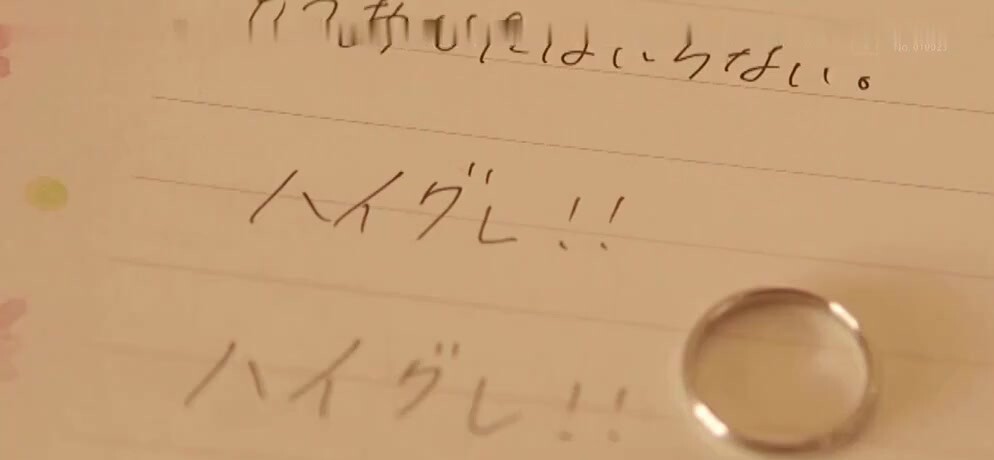 はいらない。
ハイグレ!!
ハイグレ!!